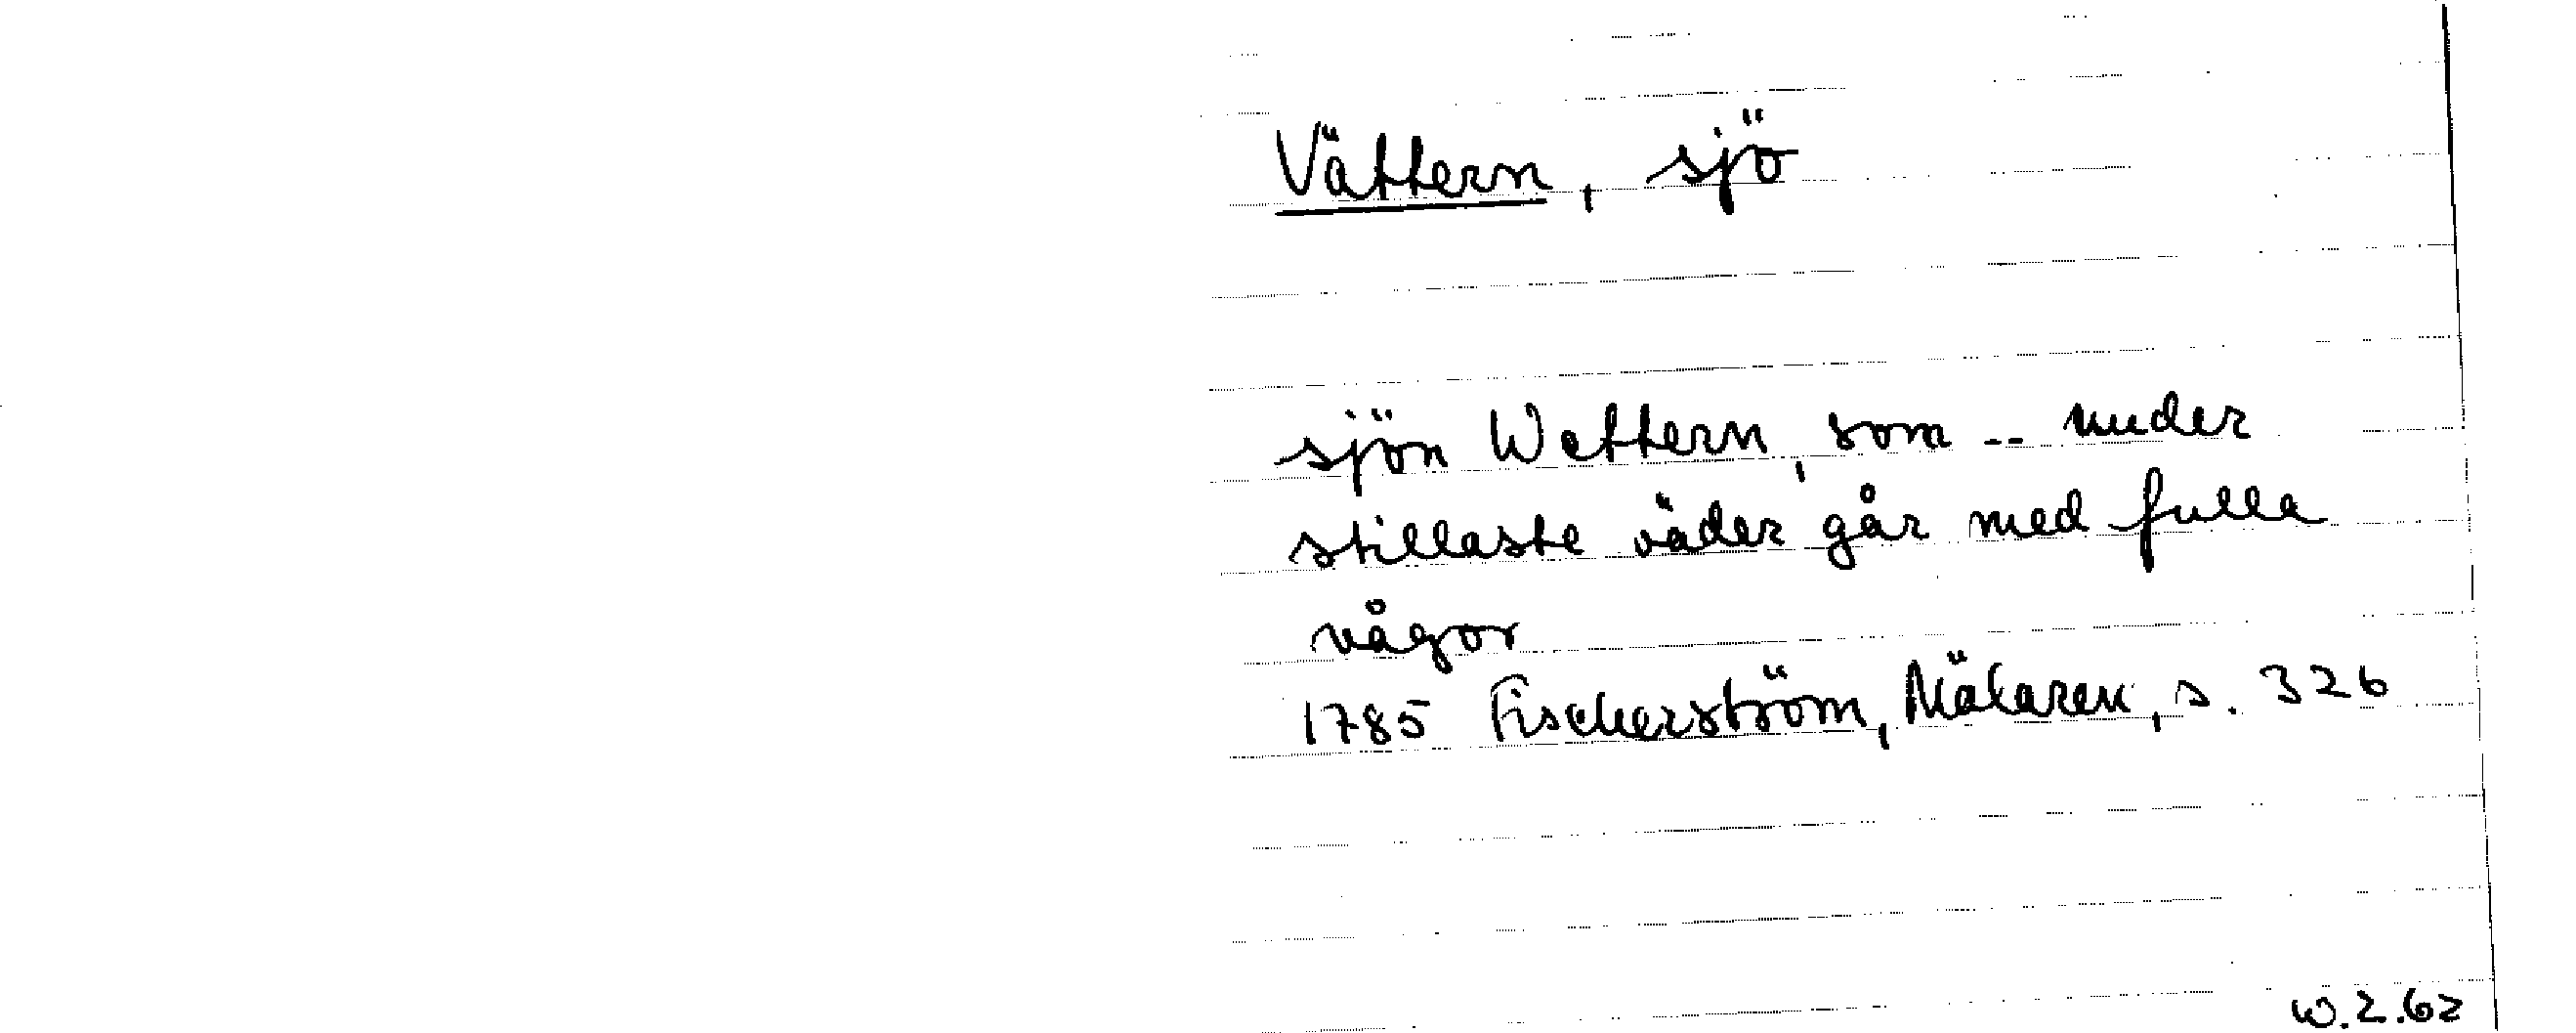 Vättern, sjö
sjön Wettern, som -- under
stillaste väder går med fulla
vågor
1785 Fischerström, Mälaren, s. 326
W.2.62